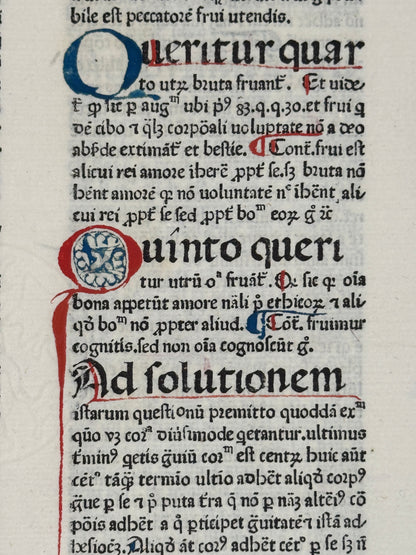 bile est peccatorē frui utendis.
Queritur quar
to utꝝ bruta fruanť. Et uide
ť ꝙ sic ꝑ augᵐ ubi pꝰ 83.q.q.30.et frui q
dē cibo ⁊ qͥlꝫ corpōali uoluptate nō a deo
absͬde extimāť et bestie. Conť.frui est
alicui rei amore īherē ꝓpť se.sꝫ bruta nō
hēnt amorē qꝛ nō voluntatē nᶜ īhēnt,ali
cui rei ꝓpť se sed ꝓpť boᵐ eoꝝ gͦ
Quinto queri
tur utrū oᵃ fruāť. Q. sic qꝛ oīa
bona appetūt amore nāli ethicoꝝ ⁊ ali
qͦ boᵐ nō ꝓpter aliud. Cōť. fruimur
cognitis.sed non oīa cognoscūt gͦ.
Ad solutionem
istarum questionū premitto quoddā exᵐ
qūo vꝫ corᵃ diūsimode getantur.ultimus
ťminꝰ getis giuiū corᵐ est centꝝ huic aūt
cēťᵒ tāꝙ termio ultīo adhēt aliqͦ corpꝰ
gͥue ꝑ se ⁊ pͥ puta ťra qͥ nō ꝑ nāꝫ alteͥꝰ cō
pōis adhēt a qͥ ꝑticipet gͥuitatē ⁊ istā ad
hesiōeꝫ. Aliqͦ āt corꝰ adhēt cēťᵒ ꝑ se sꝫ n̄